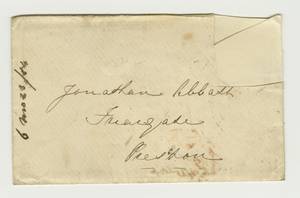 Jonathan Abbatt
Friargate
Preston